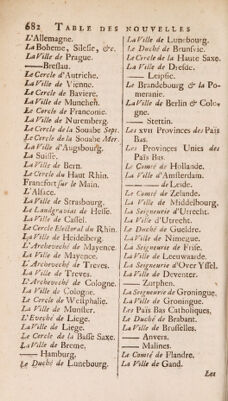 682 TABLE DES NOUVELLES
L'Allemagne.
La Boheme, Silesie, &c.
La Ville de Prague.
—— Breslau.
Le Cercle d'Autriche.
La Ville de Vienne.
Le Cercle de Baviere.
La Ville de Munchen.
Le Cercle de Franconie.
La Ville de Nuremberg.
Le Cercle de la Souabe Sept.
Le Cercle de la Souabe Mer.
La Ville d'Augsbourg.
La Suisse.
La Ville de Bern.
Le Cercle du Haut Rhin.
Francfort sur le Main.
L'Alsace.
La Ville de Strasbourg.
Le Landgraviat de Hesse.
La Ville de Cassel.
Le Cercle Electoral du Rhin.
La Ville de Heidelberg.
L'Archeveché de Mayence.
La Ville de Mayence.
L'Archeveché de Treves.
La Ville de Treves.
L'Archeveché de Cologne.
La Ville de Cologne.
Le Cercle de Westphalie.
La Ville de Munster.
L'Eveché de Liege.
La Ville de Liege.
Le Cercle de la Basse Saxe.
La Ville de Breme.
—— Hamburg.
Le Duché de Lunebourg.
La Ville de Lunebourg.
Le Duché de Brunsvic.
Le Cercle de la Haute Saxe.
La Ville de Dresde.
—— Leipsic.
Le Brandebourg & la Pomeranie.
La Ville de Berlin & Cologne.
—— Stettin.
Les XVII Provinces des Païs Bas.
Les Provinces Unies des Païs Bas.
Le Comté de Hollande.
La Ville d'Amsterdam.
—— de Leide.
Le Comté de Zelande.
La Ville de Middelbourg.
La Seigneurie d'Utrecht.
La Ville d'Utrecht.
Le Duché de Gueldre.
La Ville de Nimegue.
La Seigneurie de Frise.
La Ville de Leeuwaarde.
La Seigneurie d'Over Yssel.
La Ville de Deventer.
—— Zutphen.
La Seigneurie de Groningue.
La Ville de Groningue.
Les Païs Bas Catholiques.
Le Duché de Brabant.
La Ville de Bruselles.
—— Anvers.
—— Malines.
Le Comté de Flandre.
La Ville de Gand.